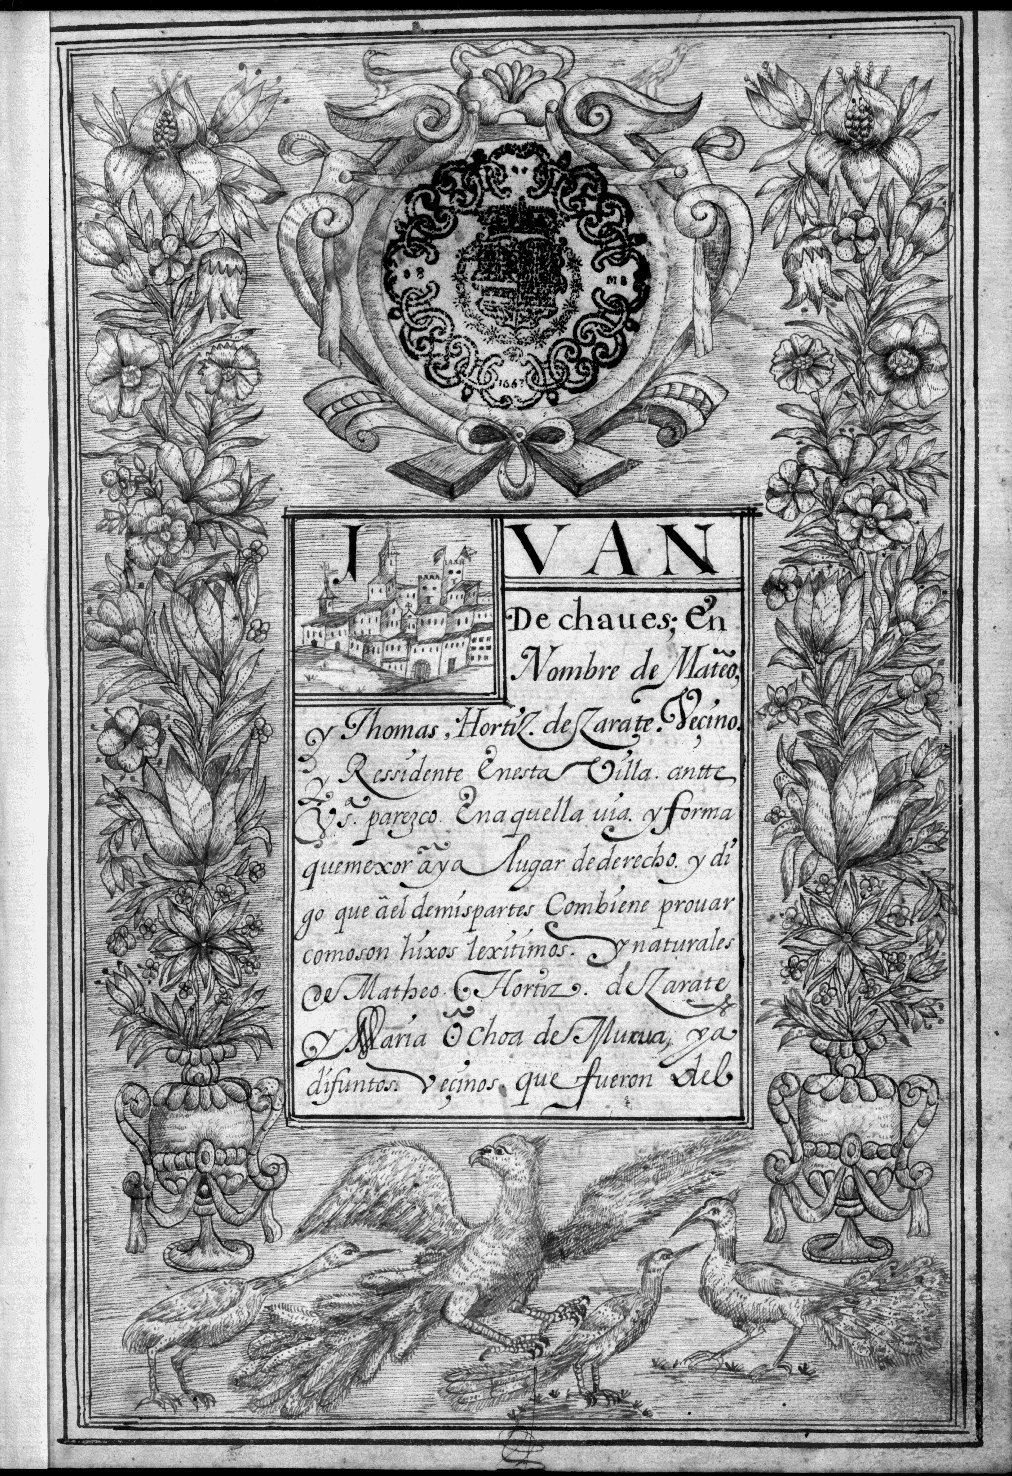 1667
IVAN
De chaues; En
Nombre de Mateo,
y Thomas, Hortiz. de Zarate. Vecino.
y Ressidente Enesta Villa. antte
Vs. parezco. Enaquella uia. y forma
quemexor aya lugar de derecho. y di
go que ael demispartes Combiene prouar
comoson hixos lexitimos. y naturales
de Matheo. Hortiz. de Zarate
y Maria Ochoa de Murua, ya
difuntos. Vecinos. que fueron del